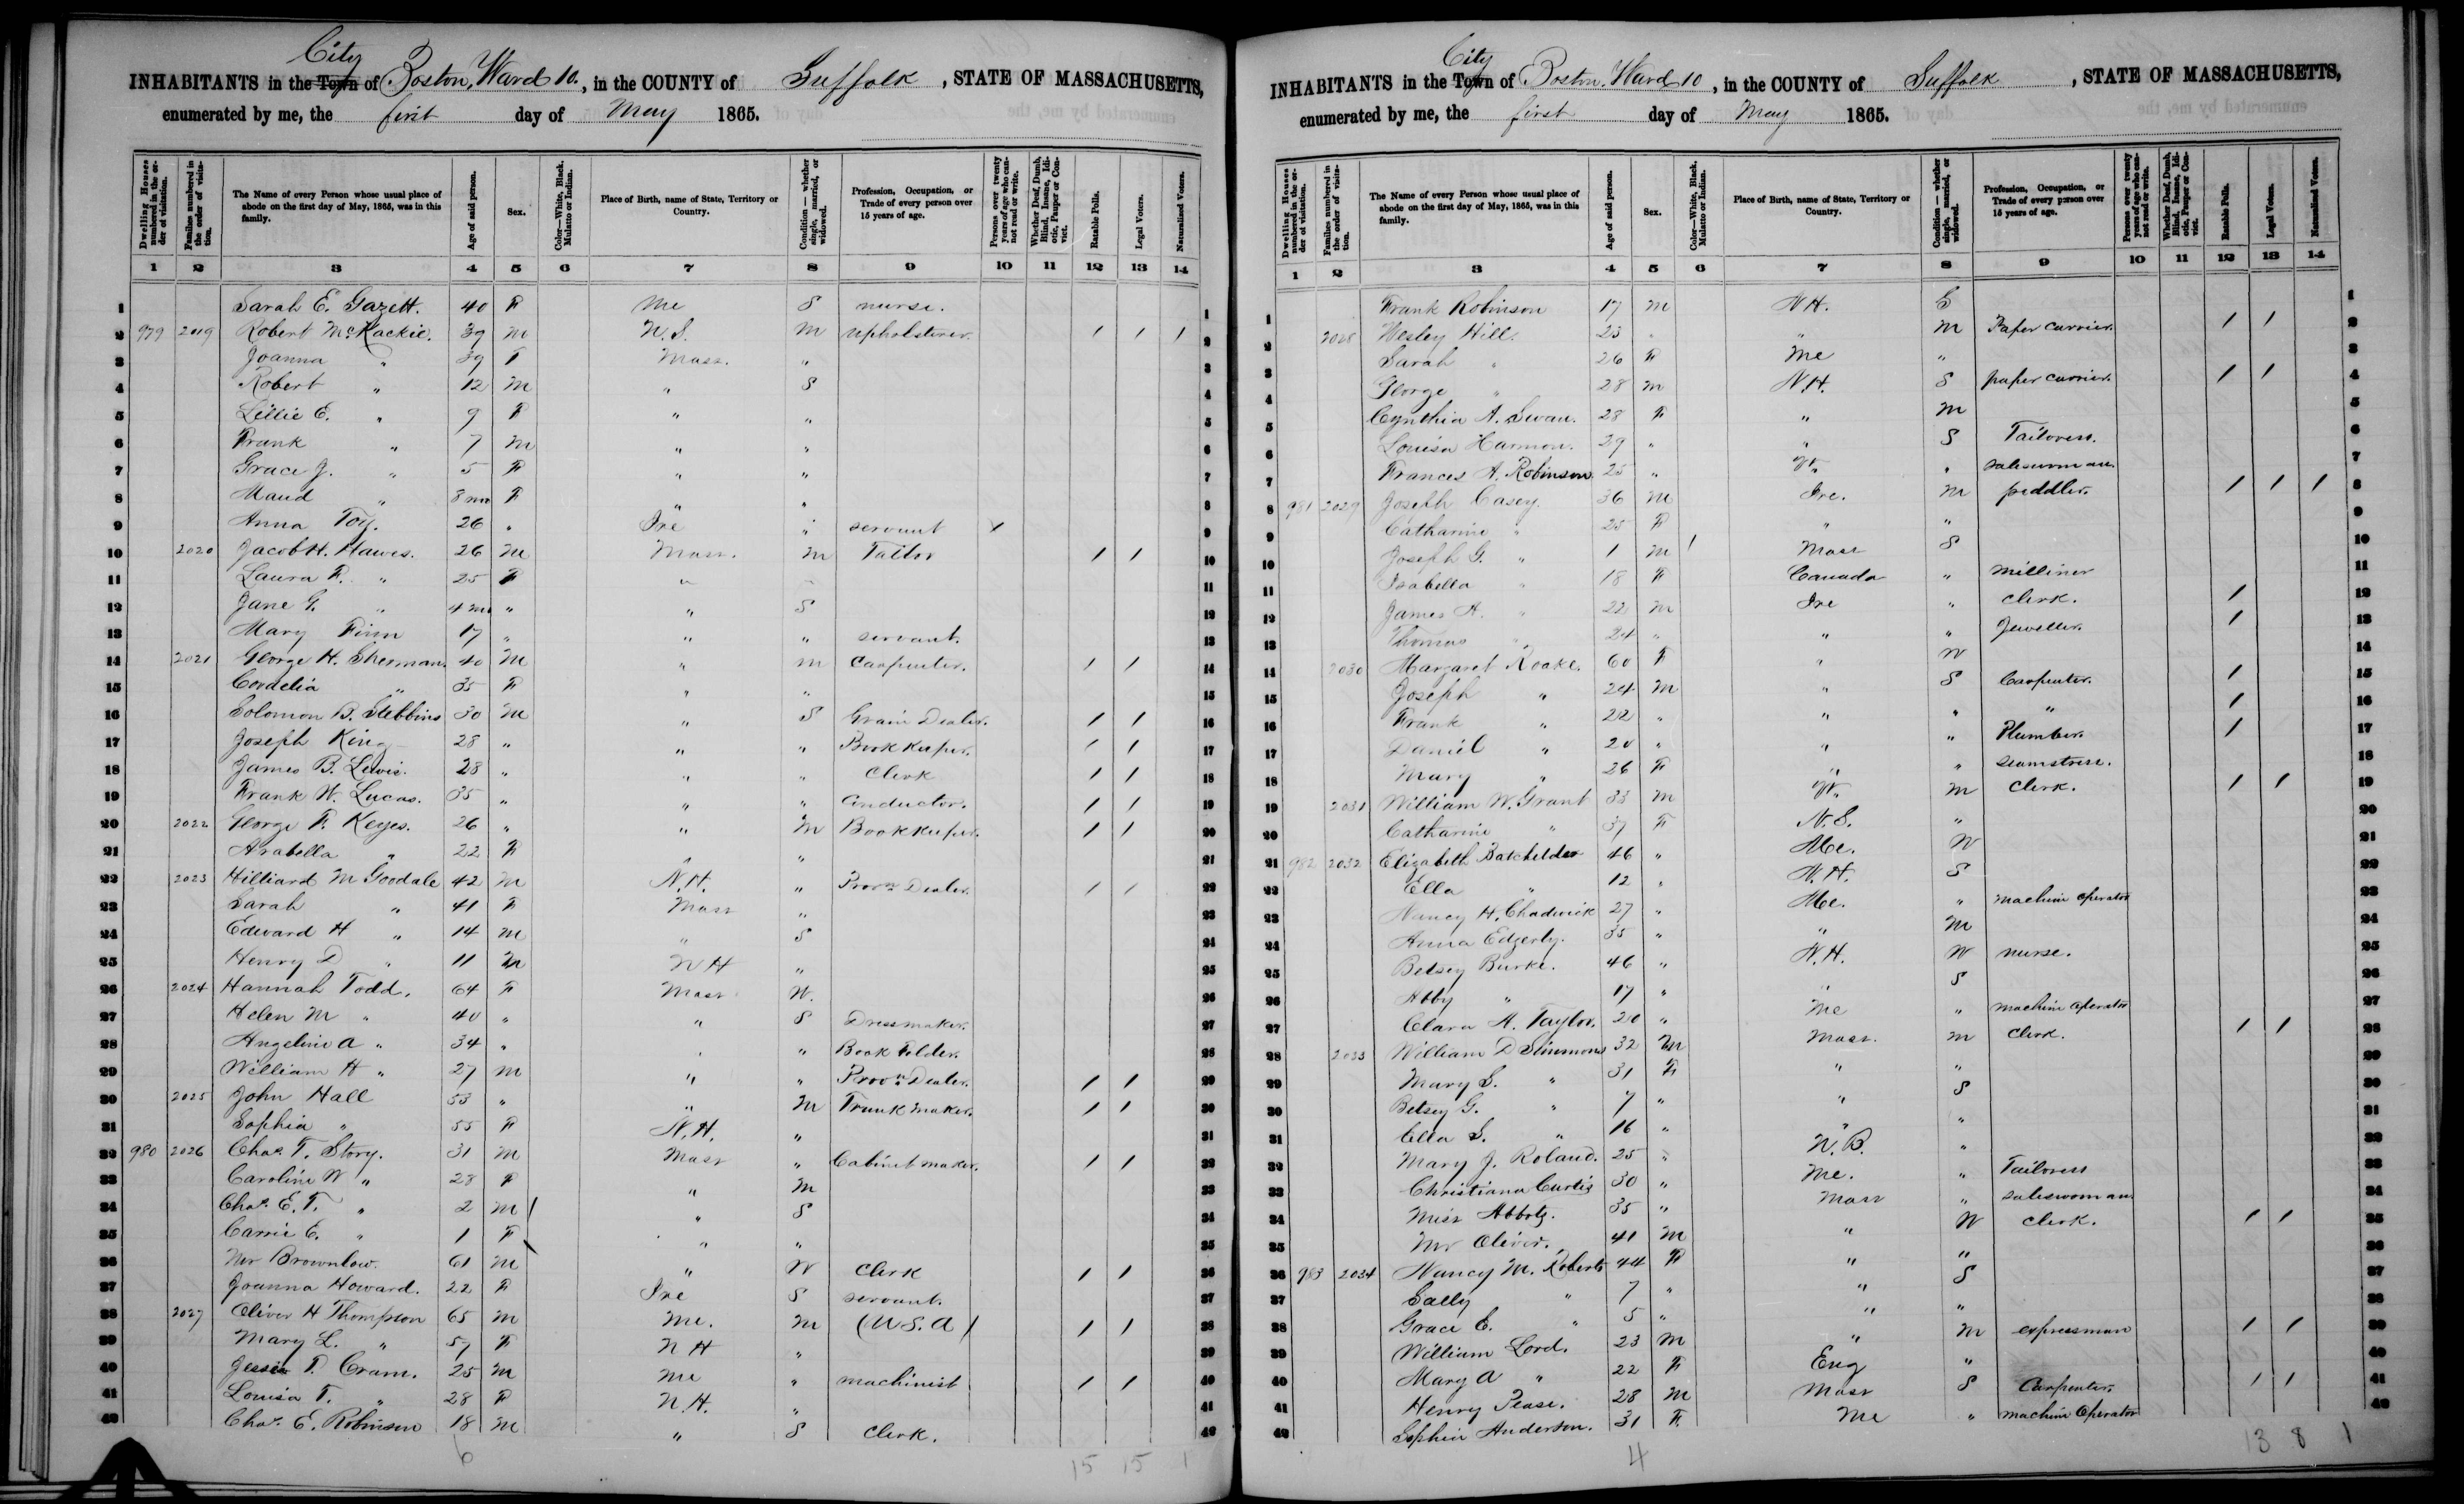 City
INHABITANTS in the Town of Boston, Ward 10., in the COUNTY of Suffolk, STATE OF MASSACHUSETTS,
enumerated by me, the first day of May 1865.
Dwelling Houses numbered in the order of visitation. Families numbered in the order of visitation. The Name of every Person whose usual place of abode on the first day of May, 1865, was in this family. Age of said person. Sex. Color—White, Black, Mulatto or Indian. Place of Birth, name of State, Territory or Country. Condition — whether single, married, or widowed. Profession, Occupation, or Trade of every person over 15 years of age. Persons over twenty years of age who cannot read or write. Whether Deaf, Dumb, Blind, Insane, Idiotic, Pauper or Convict. Ratable Polls. Legal Voters. Naturalized Voters.
1 2 3 4 5 6 7 8 9 10 11 12 13 14
1 Sarah E. Gazett. 40 F Me S nurse. 1
2 979 2019 Robert McKackie. 39 M N.S. M upholsterer. / / / 2
3 Joanna " 39 F Mass. " 3
4 Robert " 12 M " S 4
5 Lillie E. " 9 F " " 5
6 Frank " 7 M " " 6
7 Grace J. " 5 F " " 7
8 Maud " 8 mo F " " 8
9 Anna Foy. 26 " Ire " servant / 9
10 2020 Jacob H. Hawes. 26 M Mass. M Tailor / / 10
11 Laura F. " 25 F " " 11
12 Jane G. " 4 mo " " S 12
13 Mary Finn 17 " " " servant. 13
14 2021 George H. Sherman. 40 M " M Carpenter. / / 14
15 Cordelia " 35 F " " 15
16 Solomon B. Stebbins 30 M " S Grain Dealer. / / 16
17 Joseph King 28 " " " Book keeper. / / 17
18 James B. Lewis. 28 " " " Clerk / / 18
19 Frank W. Lucas. 35 " " " Conductor. / / 19
20 2022 George F. Keyes. 26 " " M Bookkeeper. / / 20
21 Arabella " 22 F " " 21
22 2023 Hilliard M Goodale 42 M N.H. " Provn Dealer. / / 22
23 Sarah " 41 F Mass " 23
24 Edward H " 14 M " S 24
25 Henry D " 11 M N H " 25
26 2024 Hannah Todd. 64 F Mass W. 26
27 Helen M " 40 " " S Dressmaker. 27
28 Angeline A " 34 " " " Book Folder. 28
29 William H " 27 M " " Provn Dealer. / / 29
30 2025 John Hall 53 " " M Trunk maker. / / 30
31 Sophia " 55 F N.H. " 31
32 980 2026 Chas. T. Story. 31 M Mass " Cabinet maker. / / 32
33 Caroline W " 28 F " M 33
34 Chas. E. T. " 2 M / " S 34
35 Carrie E. " 1 F \ " " 35
36 Mr Brownlow. 61 M " W Clerk / / 36
37 Joanna Howard. 22 F Ire S servant. 37
38 2027 Oliver H Thompson 65 M Me. M (U.S.A) / / 38
39 Mary L. " 57 F N H " 39
40 Jessie P. Cram. 25 M Me " machinist / / 40
41 Louisa T. " 28 F N.H. " 41
42 Chas. E. Robinson 18 M " S Clerk. 42
6 15 15 1
City
INHABITANTS in the Town of Boston. Ward 10, in the COUNTY of Suffolk, STATE OF MASSACHUSETTS,
enumerated by me, the first day of May 1865.
Dwelling Houses numbered in the order of visitation. Families numbered in the order of visitation. The Name of every Person whose usual place of abode on the first day of May, 1865, was in this family. Age of said person. Sex. Color—White, Black, Mulatto or Indian. Place of Birth, name of State, Territory or Country. Condition — whether single, married, or widowed. Profession, Occupation, or Trade of every person over 15 years of age. Persons over twenty years of age who cannot read or write. Whether Deaf, Dumb, Blind, Insane, Idiotic, Pauper or Convict. Ratable Polls. Legal Voters. Naturalized Voters.
1 2 3 4 5 6 7 8 9 10 11 12 13 14
1 Frank Robinson 17 M N.H. S 1
2 2028 Wesley Hill. 23 " " M Paper carrier. / / 2
3 Sarah " 26 F Me " 3
4 George " 28 M N.H. S paper carrier. / / 4
5 Cynthia A. Swan. 28 F " M 5
6 Louisa Harmon. 29 " " S Tailoress. 6
7 Frances A. Robinson 25 " Vt. " saleswoman. 7
8 981 2029 Joseph Casey. 36 M Ire. M peddler. / / / 8
9 Catharine " 25 F " " 9
10 Joseph G. " 1 M / Mass S 10
11 Isabella " 18 F Canada " milliner 11
12 James A. " 22 M Ire " clerk. / 12
13 Thomas " 24 " " " Jeweller. / 13
14 2030 Margaret Roake. 60 F " W 14
15 Joseph " 24 M " S Carpenter. / 15
16 Frank " 22 " " " " / 16
17 Daniel " 20 " " " Plumber. / 17
18 Mary " 26 F " " seamstress. 18
19 2031 William W. Grant 33 M Vt. M clerk. / / 19
20 Catharine " 37 F N.S. " 20
21 982 2032 Elizabeth Batchelder 46 " Me. W 21
22 Ella " 12 " N.H. S 22
23 Nancy H. Chadwick 27 " Me. " machine operator 23
24 Anna Edgerly. 35 " " M 24
25 Betsey Burke. 46 " N.H. W nurse. 25
26 Abby " 17 " " S 26
27 Clara A. Taylor. 20 " Me " machine operator 27
28 2033 William D Simmons 32 M Mass. M Clerk. / / 28
29 Mary S. " 31 F " " 29
30 Betsey G. " 7 " " S 30
31 Ella S. " 16 " " " 31
32 Mary J. Roland. 25 " N.B. " 32
33 Christiana Curtis 30 " Me. " Tailoress 33
34 Miss Abbotz. 35 " Mass " saleswoman. 34
35 Mr Oliver. 41 M " W Clerk. / / 35
36 983 2034 Nancy M. Roberts 44 F " " 36
37 Sally " 7 " " S 37
38 Grace E. " 5 " " " 38
39 William Lord. 23 M " M expressman / / 39
40 Mary A " 22 F Eng " 40
41 Henry Pease. 28 M Mass S Carpenter. / / 41
42 Sophia Anderson. 31 F. Me " machine Operator 42
4 13 8 1